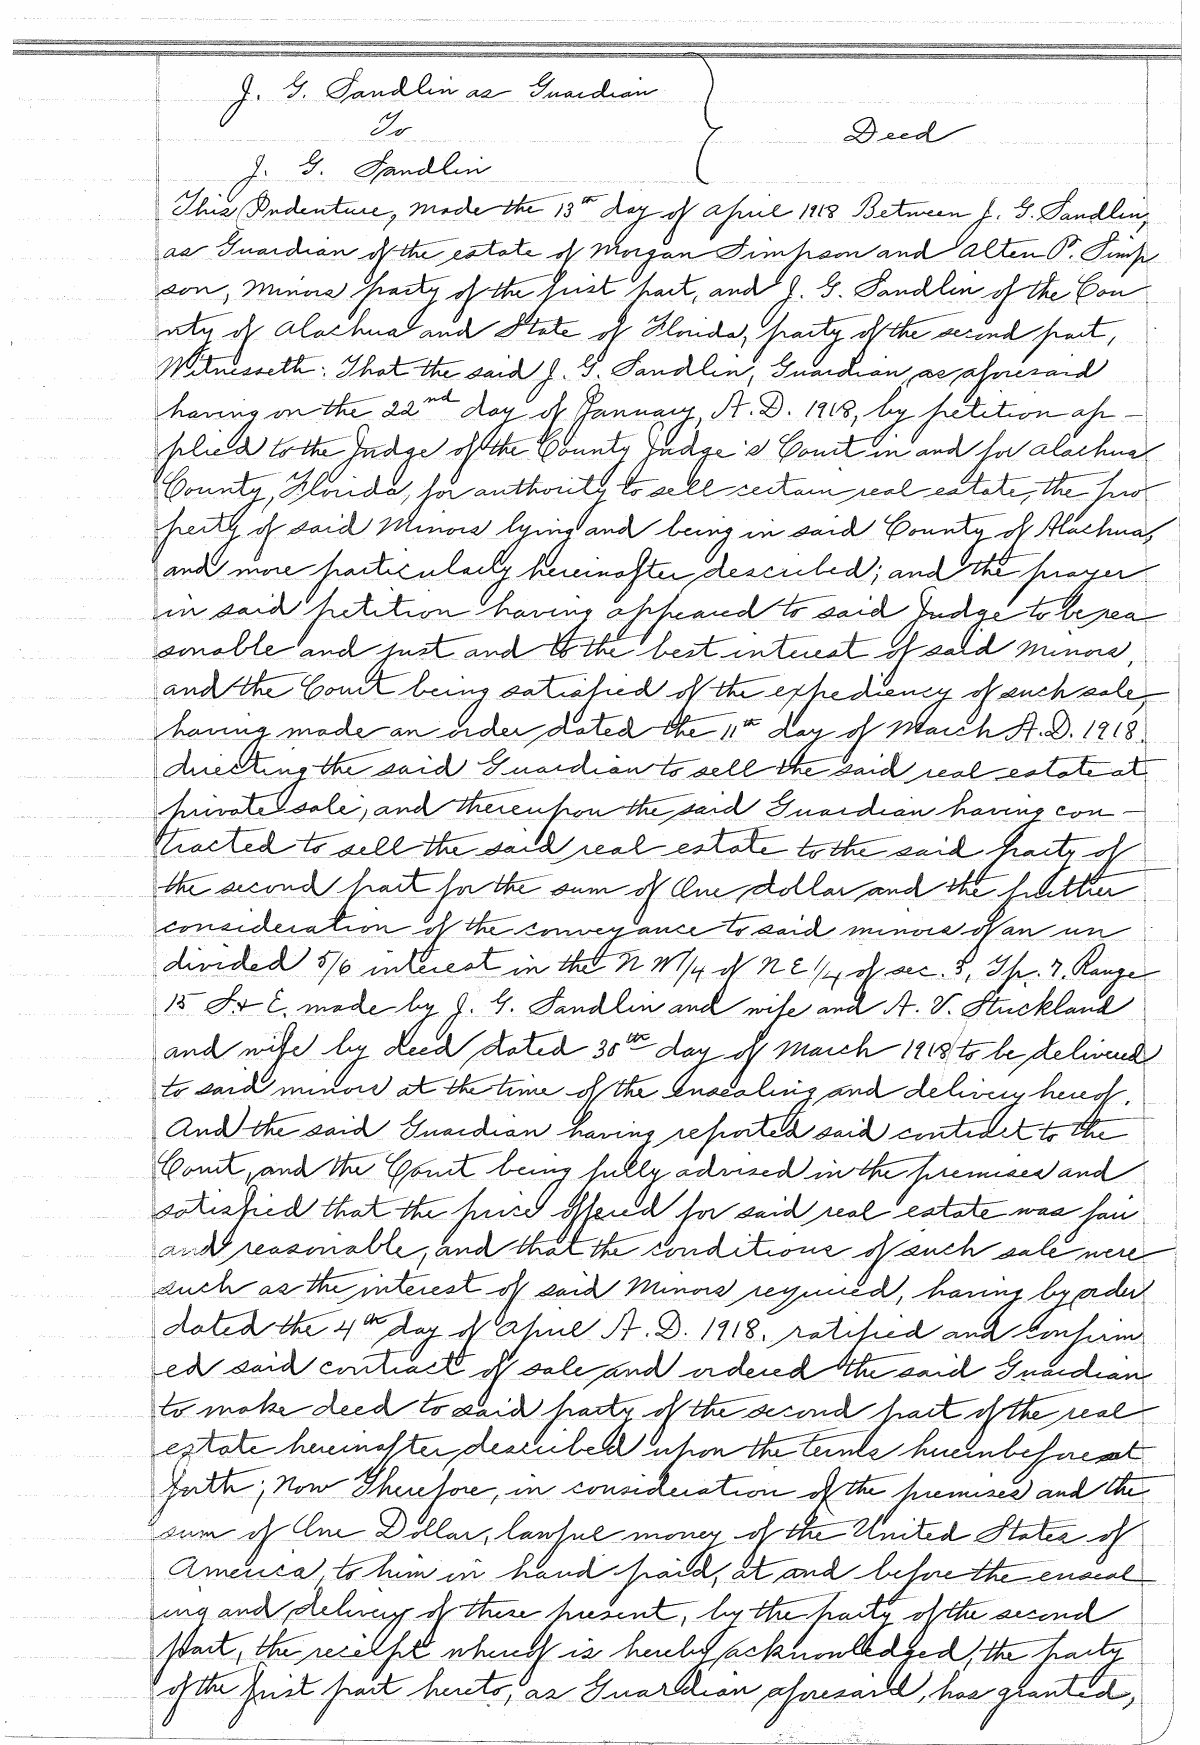 J. G. Sandlin as Guardian
To
Deed
J. G. Sandlin
This Indenture, made the 13th day of April 1918 Between J. G. Sandlin,
as Guardian of the estate of Morgan Simpson and Alten P. Simp
son, Minors party of the first part, and J. G. Sandlin of the Cou
nty of Alachua and State of Florida, party of the second part,
Witnesseth: That the said J. G. Sandlin, Guardian, as aforesaid
having on the 22nd day of January, A.D. 1918, by petition ap-
plied to the Judge of the County Judge's Court in and for Alachua
County, Florida, for authority to sell certain real estate, the pro
perty of said Minors lying and being in said County of Alachua,
and more particularly hereinafter described; and the prayer
in said petition having appeared to said Judge to be rea
sonable and just and to the best interest of said Minors,
and the Court being satisfied of the expediency of such sale,
having made an order dated the 11th day of March A.D. 1918.
directing the said Guardian to sell the said real estate at
private sale, and thereupon the said Guardian having con-
tracted to sell the said real estate to the said party of
the second part for the sum of One dollar and the further
consideration of the conveyance to said minors of an un
divided 5/6 interest in the N W 1/4 of N E 1/4 of sec. Tp. 7. Range
15 S & E. made by J. G. Sandlin and wife and A. V. Stuckland
and wife by deed dated 30th day of March 1918 to be delivered
to said minors at the time of the ensealing and delivery hereof.
And the said Guardian having reported said contract to the
Court, and the Court being fully advised in the premises and
satisfied that the price offered for said real estate was fair
and reasonable, and that the conditions of such sale were
such as the interest of said Minors required, having by order
dated the 4th day of April A.D. 1918. ratified and confirm
ed said contract of sale and ordered the said Guardian
to make deed to said party of the second part of the real
estate hereinafter described upon the terms hereinbefore set
forth; Now Therefore, in consideration of the premises and the
sum of One Dollar, lawful money of the United States of
America, to him in hand paid, at and before the enseal
ing and delivery of these present, by the party of the second
part, the receipt whereof is hereby acknowledged, the party
of the first part hereto, as Guardian aforesaid, has granted,